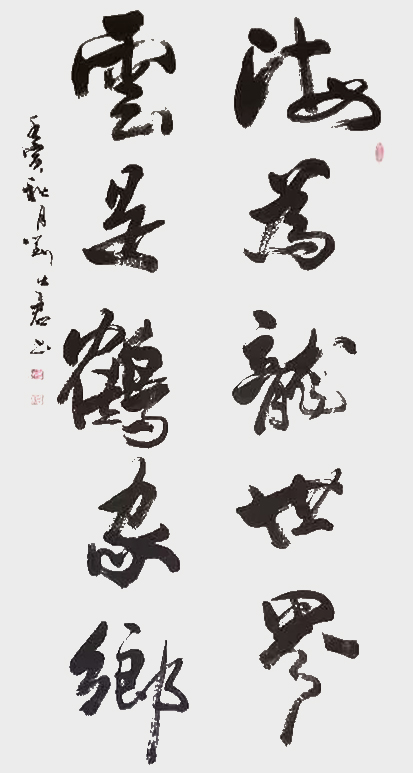 海為龍世界
雲是鶴家鄉
壬寅秋月劉士君書